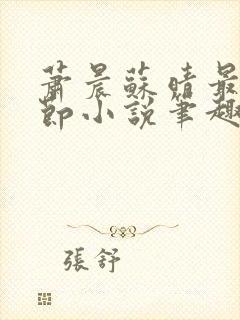 蕭晨蘇晴最
節小說筆趣
張舒